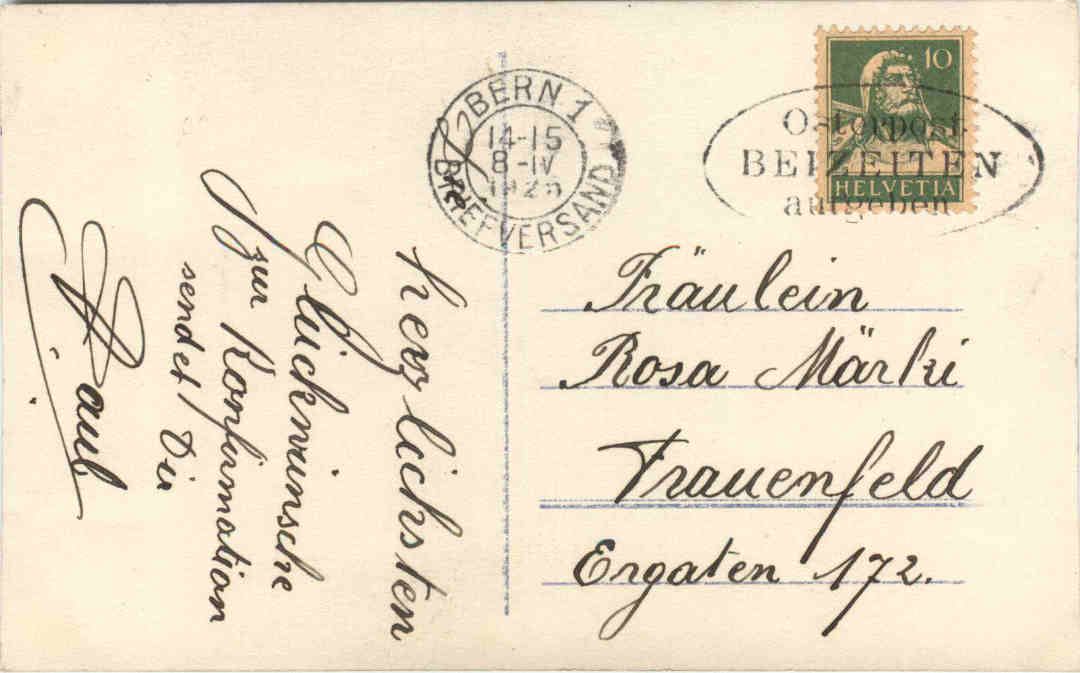 BERN 1
14-15
8-IV
BRIEFVERSAND
10
HELVETIA
Osterpost
BEIZEITEN
aufgeben
Fräulein
Rosa Märki
Frauenfeld
Ergaten 172.
herzlichsten
Glückwünsche
zur Konfirmation
sendet Dir
Paul